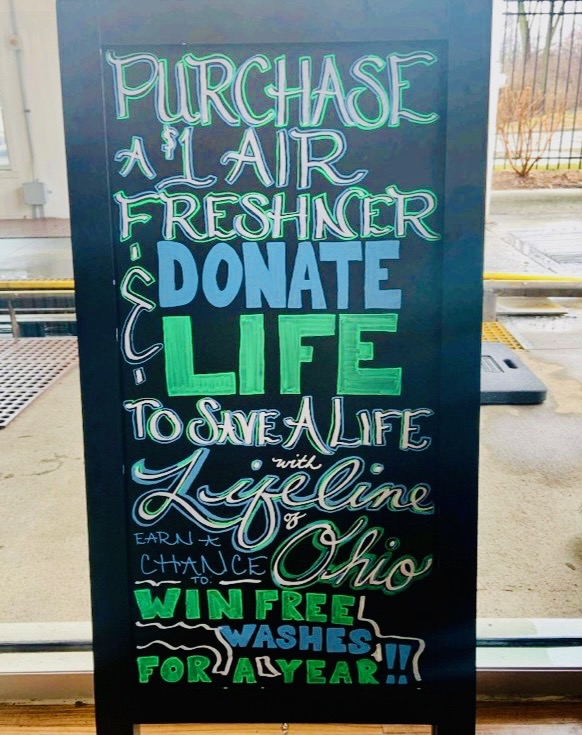 PURCHASE
A $1 AIR
FRESHNER
& DONATE
LIFE
TO SAVE A LIFE
with
Lifeline
of
Ohio
EARN A
CHANCE
TO:
WIN FREE
WASHES
FOR A YEAR!!